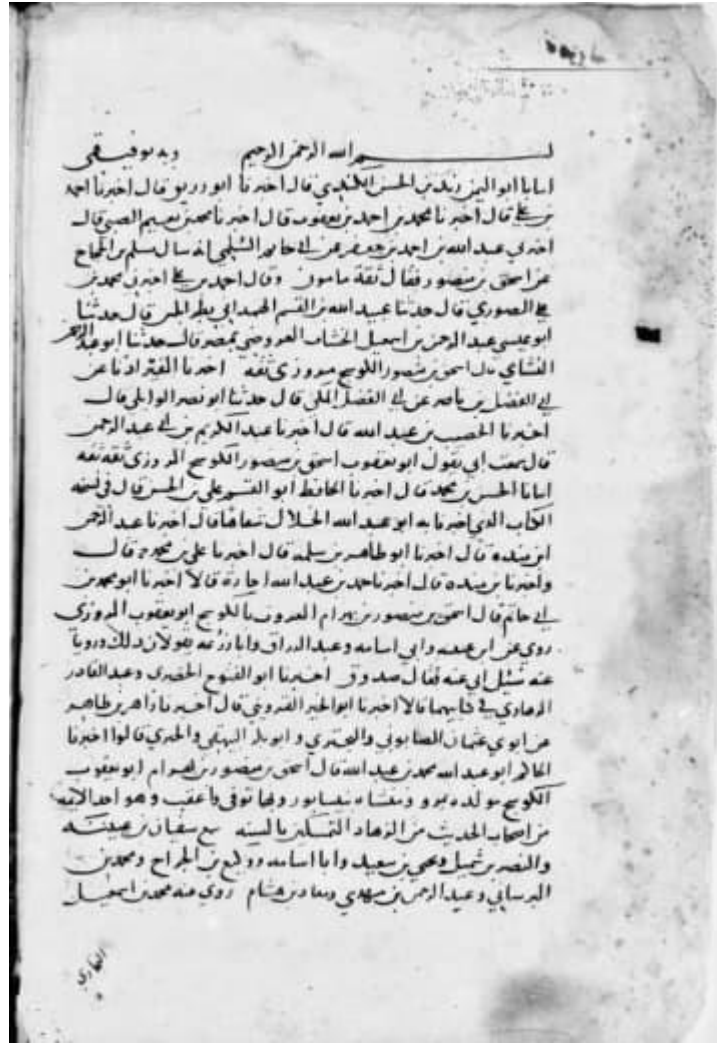 بسم الله الرحمن الرحيم وبه توفيقي
انبانا ابو اليمن زيد بن الحسن الكندي قال اخبرنا ابو زريق قال اخبرنا احمد
بن علي قال اخبرنا محمد بن احمد بن يعقوب قال اخبرنا محمد بن نعيم الضبي قال
اخبرني عبد الله بن احمد بن جعفر عن ابي حاتم السلمي انه سال مسلم بن الحجاج
عن اسحق بن منصور فقال ثقة مامون وقال احمد بن علي اخبرني محمد بن
علي الصوري قال حدثنا عبيد الله بن القسم الهمداني بطرابلس قال حدثنا
ابو عيسى عبد الرحمن بن اسمعيل الخشاب العروضي بمصر قال حدثنا ابو عبد الرحمن
النسائي قال اسحق بن منصور الكوسج مروزي ثقة اخبرنا اذنا عن
ابي الفضل بن ناصر عن ابي الفضل المكي قال حدثنا ابو نصر الوايلي قال
اخبرنا الخصيب بن عبد الله قال اخبرنا عبد الكريم بن ابي عبد الرحمن
قال سمعت ابي يقول ابو يعقوب اسحق بن منصور الكوسج المروزي ثقة ثقة
انبانا الحسن بن محمد قال اخبرنا الحافظ ابو القسم علي بن الحسن قال في نسخه
الكتاب الذي اخبرنا به ابو عبد الله الخلال شفاها قال اخبرنا عبد الرحمن
ابن منده قال اخبرنا ابو طاهر بن سلمه قال اخبرنا علي بن محمد ح قال
واخبرنا بن منده قال اخبرنا حمد بن عبد الله اجازة قالا اخبرنا ابو محمد بن
ابي حاتم قال اسحق بن منصور بن بهرام المعروف بالكوسج ابو يعقوب المروزي
روي عن ابن عيينه وابي اسامه وعبد الرزاق وابا زرعه يقولان ذلك ورويا
عنه سئل ابي عنه فقال صدوق اخبرنا ابو الفتوح الحصري وعبد القادر
الرهاوي في كتابيهما قالا اخبرنا ابو الخير القزويني قال اخبرنا زاهر بن طاهر
عن ابوي عثمان الصابوني والبحتري وابو بكر البيهقي والحيري قالوا اخبرنا
الحاكم ابو عبد الله محمد بن عبد الله قال اسحق بن منصور بن بهرام ابو يعقوب
الكوسج مولده بمرو ومنشاه بنيسابور وبها توفي واعقب وهو احد الايمه
من اصحاب الحديث من الزهاد المتمسكين بالسنه سمع سفيان بن عيينه
والنضر بن شميل ويحيى بن سعيد وابا اسامه ووكيع بن الجراح ومحمد بن
البرساني وعبد الرحمن بن مهدي ومعاذ بن هشام روي عنه محمد بن اسمعيل
البخاري